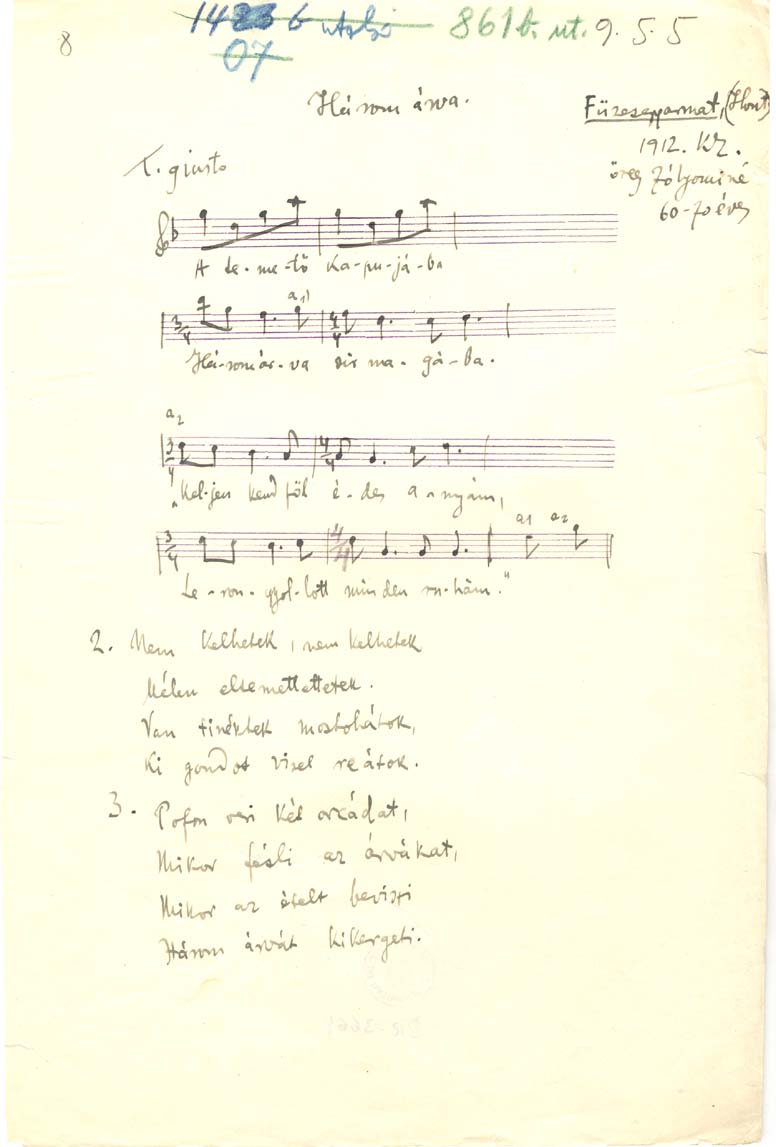 8
1423 6 utolsó 861b. ut. 9. 5. 5
07
Három árva.
Füzesgyarmat, (Hont)
1912. KZ.
öreg Zólyominé
60-70 éves
T. giusto
A te-me-tő ka-pu-já-ba
a1)
3/4 4/4
Há-rom ár-va sir ma-gá-ba.
a2
3/4 4/4
„Kel-jen kend föl é-des a-nyám,
a1 a2
3/4 4/4
Le-ron-gyol-lott minden ru-hám."
2. Nem kelhetek, nem kelhetek
Mélen eltemettettetek.
Van tinéktek mostohátok,
Ki gondot visel reátok.
3. Pofon veri két orcádat,
Mikor fésli az árvákat,
Mikor az ételt beviszi
Három árvát kikergeti.